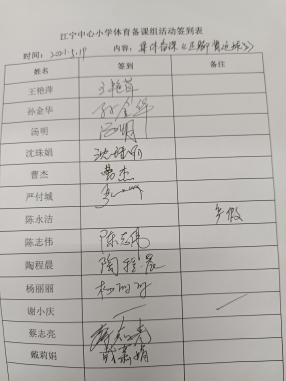 江宁中心小学体育备课组活动签到表
时间：2021.5.19 内容：集体备课
姓名 签到 备注
王艳萍 王艳萍
孙金华 孙金华
汤明 汤明
沈珠娟 沈珠娟
曹杰 曹杰
严付城
陈永洁 产假
陈志伟 陈志伟
陶程晨 陶程晨
杨丽丽 杨丽丽
谢小庆
蔡志亮 蔡志亮
戴莉娟 戴莉娟